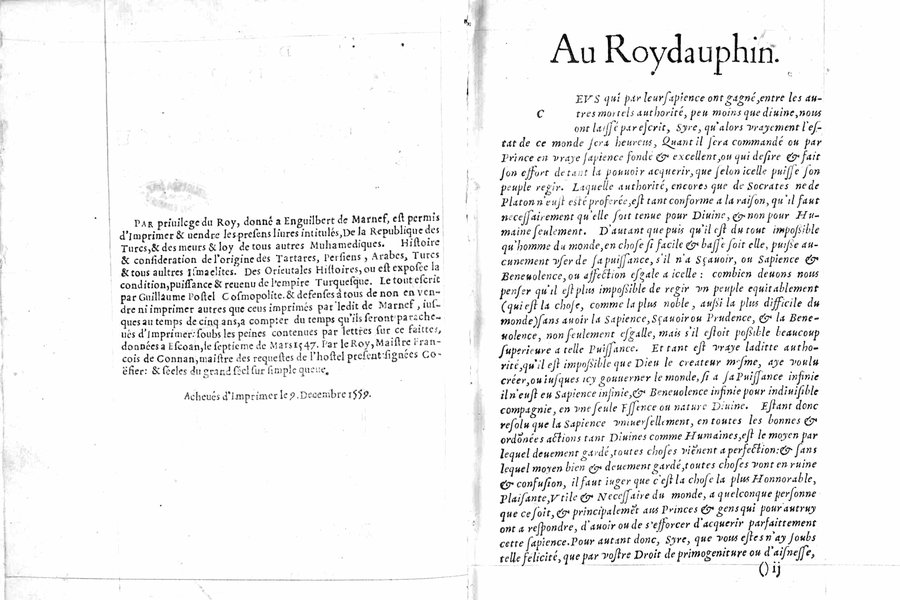 PAR priuilege du Roy, donné a Enguilbert de Marnef, est permis
d'Imprimer & uendre les presens liures intitulés, De la Republique des
Turcs, & des meurs & loy de tous autres Muhamediques. Histoire
& consideration de l'origine des Tartares, Persiens, Arabes, Turcs
& tous aultres Ismaelites. Des Orientales Histoires, ou est exposée la
condition, puissance & reuenu de l'empire Turquesque. Le tout escrit
par Guillaume Postel Cosmopolite. & defenses à tous de non en ven-
dre ni imprimer autres que ceus imprimés par ledit de Marnef, ius-
ques au temps de cinq ans, a compter du temps qu'ils seront parache-
ués d'Imprimer: souls les peines contenues par lettres sur ce faittes,
données a Escoan, le septieme de Mars 1547. Par le Roy, Maistre Fran-
cois de Connan, maistre des requestes de l'hostel present: signées Co-
efier: & seeles du grand seel sur simple queue.
Acheués d'Imprimer le 9. Decembre 1559.
Au Roydauphin.
CEVS qui par leur sapience ont gagné, entre les au-
tres mortels authorité, peu moins que diuine, nous
ont laissé par escrit, Syre, qu'alors vrayement l'es-
tat de ce monde sera heureus, Quant il sera commandé ou par
Prince en vraye sapience fondé & excellent, ou qui desire & fait
son effort de tant la pouuoir acquerir, que selon icelle puisse son
peuple regir. Laquelle authorité, encores que de Socrates ne de
Platon n'eust esté proferée, est tant conforme a la raison, qu'il faut
necessairement qu'elle soit tenue pour Diuine, & non pour Hu-
maine seulement. D'autant que puis qu'il est du tout impossible
qu'homme du monde, en chose si facile & basse soit elle, puisse au-
cunement vser de sa puissance, s'il n'a Sçauoir, ou Sapience &
Beneuolence, ou affection esgale a icelle: combien deuons nous
penser qu'il est plus impossible de regir vn peuple equitablement
(qui est la chose, comme la plus noble, aussi la plus difficile du
monde) sans auoir la Sapience, Sçauoir ou Prudence, & la Bene-
uolence, non seulement esgalle, mais s'il estoit possible beaucoup
superieure a telle Puissance. Et tant est vraye laditte autho-
rité, qu'il est impossible que Dieu le createur mesme, aye voulu
créer, ou iusques icy gouuerner le monde, si a sa Puissance infinie
il n'eust eu Sapience infinie, & Beneuolence infinie pour indiuisible
compagnie, en vne seule Essence ou nature Diuine. Estant donc
resolu que la Sapience vniuersellement, en toutes les bonnes &
ordõnées actions tant Diuines comme Humaines, est le moyen par
lequel deuement gardé, toutes choses viẽnent a perfection: & sans
lequel moyen bien & deuement gardé, toutes choses vont en ruine
& confusion, il faut iuger que c'est la chose la plus Honnorable,
Plaisante, Vtile & Necessaire du monde, a quelconque personne
que ce soit, & principalemẽt aus Princes & gens qui pour autruy
ont a respondre, d'auoir ou de s'efforcer d'acquerir parfaittement
cette sapience. Pour autant donc, Syre, que vous estes n'ay soubs
telle felicité, que par vostre Droit de primogeniture ou d'aisnesse,
() ij